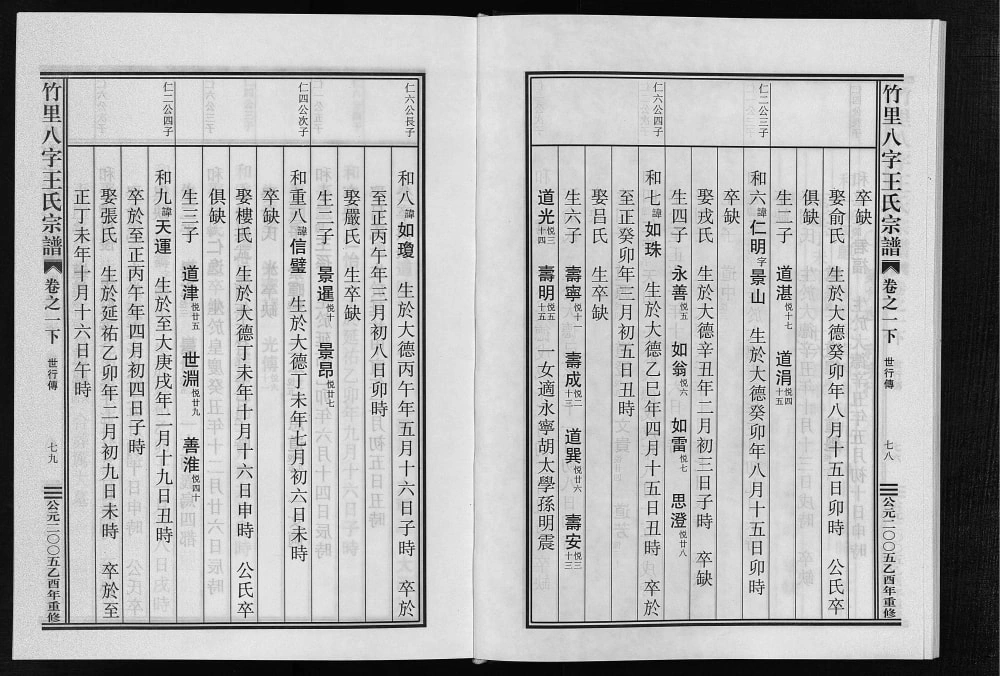 竹里八字王氏宗譜 卷之一下 世行傳 七八 公元二〇〇五乙酉年重修
卒缺
娶俞氏 生於大德癸卯年八月十五日卯時 公氏卒
俱缺
生二子 道湛悦十七 道涓悦四十五
仁二公三子
和六諱仁明字景山 生於大德癸卯年八月十五日卯時
卒缺
娶戎氏 生於大德辛丑年二月初三日子時 卒缺
生四子 永善悦五 如翁悦六 如雷悦七 思澄悦廿八
仁六公四子
和七諱如珠 生於大德乙巳年四月十五日丑時 卒於
至正癸卯年三月初五日丑時
娶呂氏 生卒缺
生六子 壽寧悦十一 壽成悦二十三 道巽悦廿六 壽安悦三十三
道光悦三十四 壽明悦三十五 一女適永寧胡太學孫明震
仁六公長子
和八諱如瓊 生於大德丙午年五月十六日子時 卒於
至正丙午年三月初八日卯時
娶嚴氏 生卒缺
生二子 景暹悦二十 景昂悦廿七
仁四公次子
和重八諱信璧 生於大德丁未年七月初六日未時
卒缺
娶樓氏 生於大德丁未年十月十六日申時 公氏卒
俱缺
生三子 道津悦廿五 世淵悦廿九 善淮悦四十
仁二公四子
和九諱天運 生於至大庚戌年二月十九日丑時
卒於至正丙午年四月初四日子時
娶張氏 生於延祐乙卯年二月初九日未時 卒於至
正丁未年十月十六日午時
竹里八字王氏宗譜 卷之一下 世行傳 七九 公元二〇〇五乙酉年重修